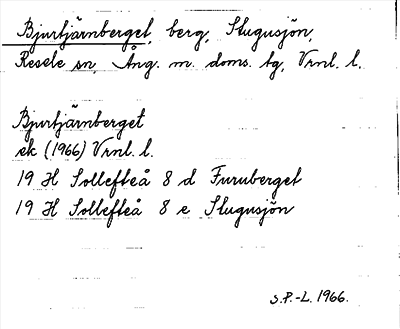 Bjurtjärnberget, berg, Stugusjön,
Resele sn, Ång. m. doms. tg, Vrnl. l.
Bjurtjärnberget
ek (1966) Vrnl. l.
19 H Sollefteå 8 d Furuberget
19 H Sollefteå 8 e Stugusjön
S.P.-L. 1966.